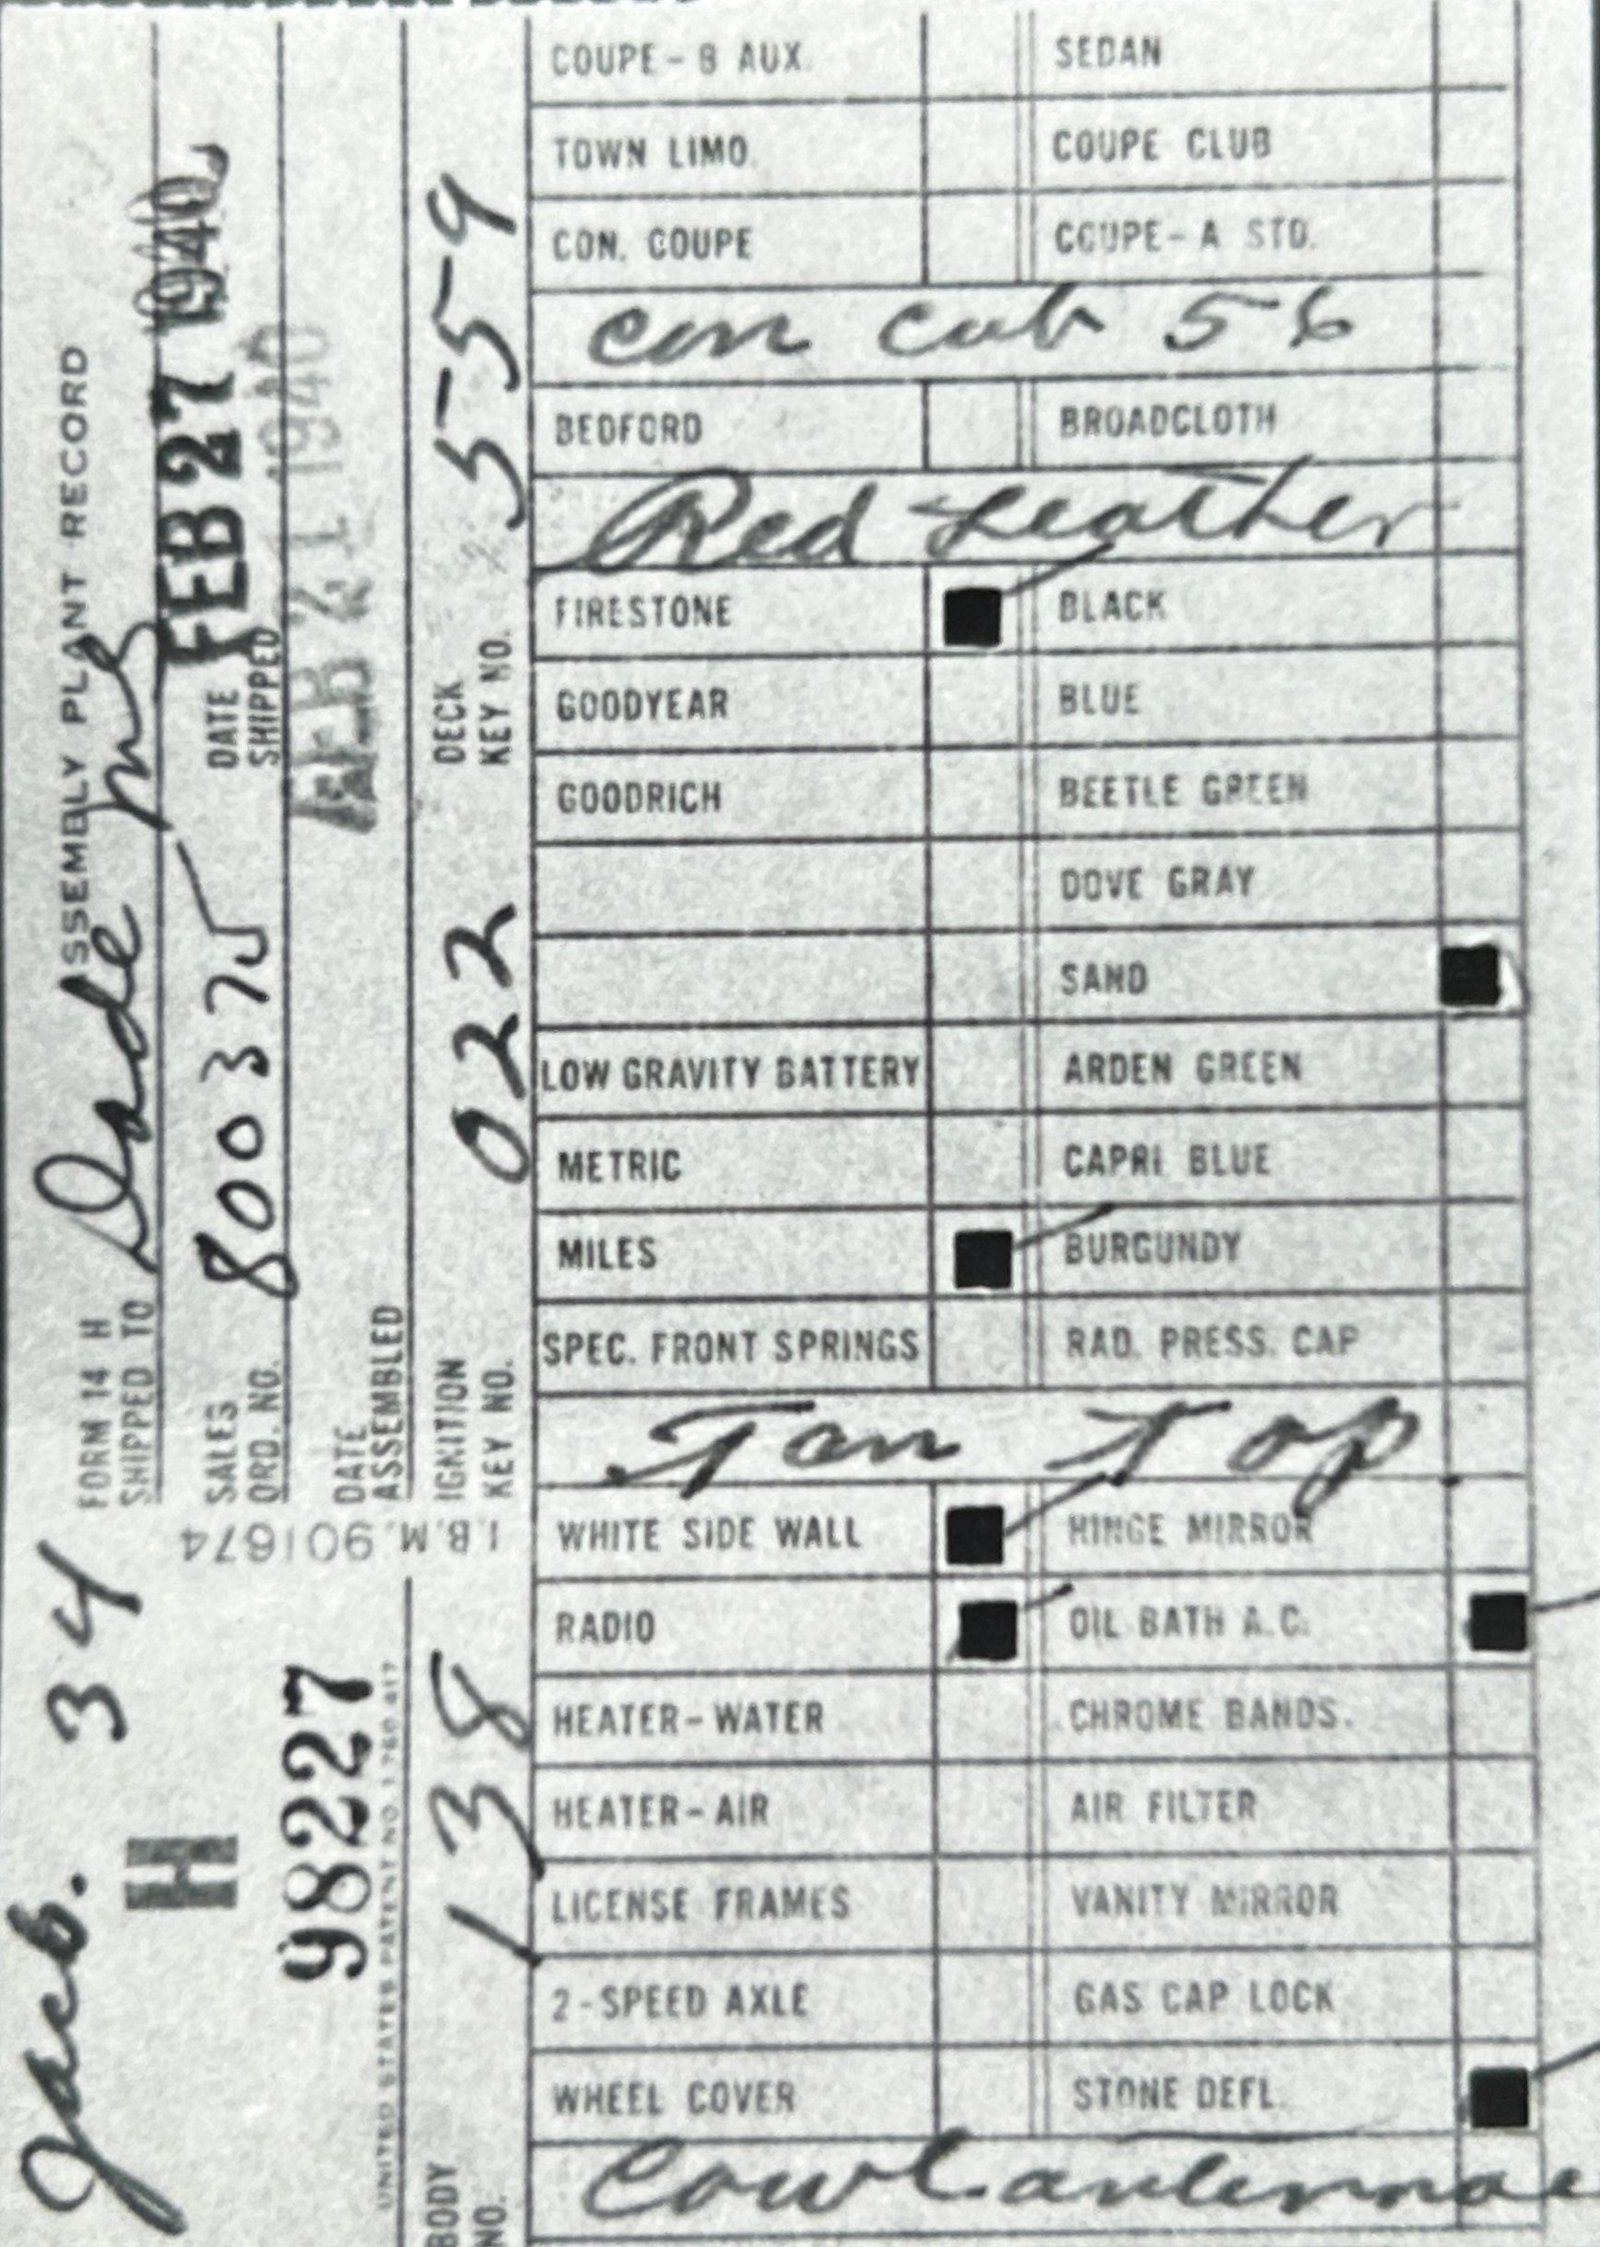 FORM 14 H ASSEMBLY PLANT RECORD
SHIPPED TO Dade
SALES ORD. NO. 800375
DATE SHIPPED FEB 27 1940
DATE ASSEMBLED FEB 21 1940
IGNITION KEY NO. 022
DECK KEY NO. 559
I.B.M. 901674
Jacb. 34
H
98227
UNITED STATES PATENT NO. 1,780,417
BODY NO. 138
COUPE-B AUX. SEDAN
TOWN LIMO. COUPE CLUB
CON. COUPE COUPE-A STD.
Con Cab 56
BEDFORD BROADCLOTH
Red Leather
FIRESTONE BLACK
GOODYEAR BLUE
GOODRICH BEETLE GREEN
DOVE GRAY
SAND
LOW GRAVITY BATTERY ARDEN GREEN
METRIC CAPRI BLUE
MILES BURGUNDY
SPEC. FRONT SPRINGS RAD. PRESS. CAP
Tan Top
WHITE SIDE WALL HINGE MIRROR
RADIO OIL BATH A.C.
HEATER-WATER CHROME BANDS.
HEATER-AIR AIR FILTER
LICENSE FRAMES VANITY MIRROR
2-SPEED AXLE GAS CAP LOCK
WHEEL COVER STONE DEFL.
Cowl antennae